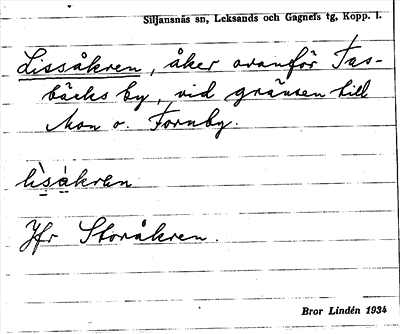 Siljansnäs sn, Leksands och Gagnefs tg, Kopp. l.
Lissåkren, åker ovanför Tas-
bäcks by, vid gränsen till
Mon o. Fornby.
lìsàkrɐn
Jfr Storåkren.
Bror Lindén 1934